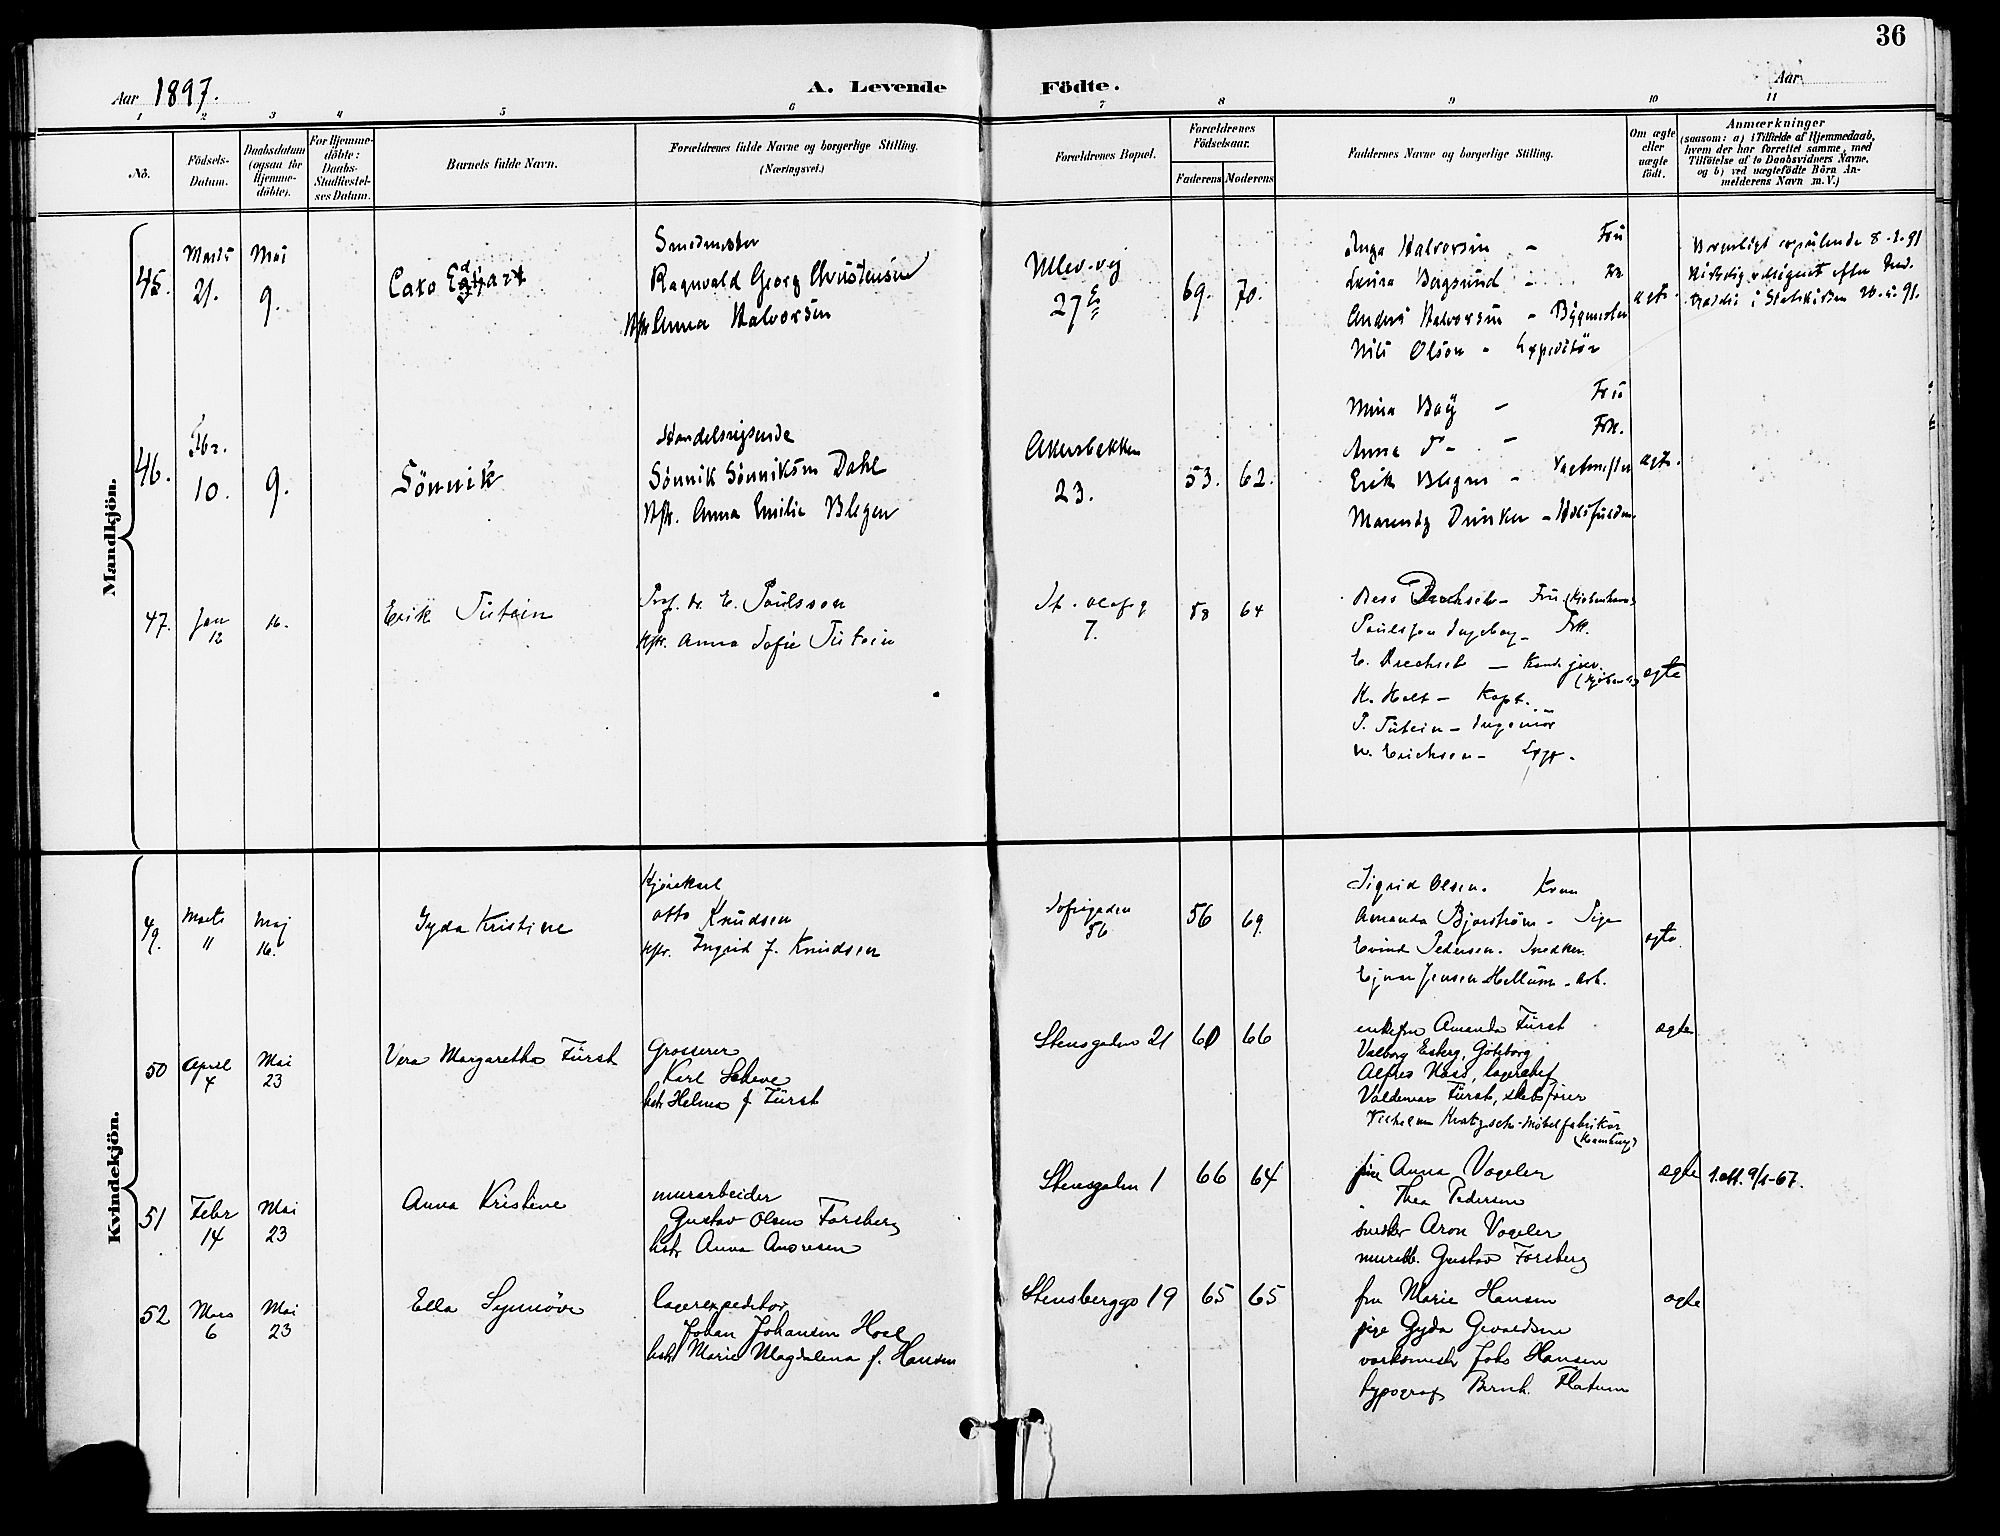 36
Aar 1897.
A. Levende Födte.
Aar
1 2 3 4 5 6 7 8 9 10 11
No.
Födsels-
Datum.
Daabsdatum
(ogsaa for
Hjemme-
döbte).
For Hjemme-
döbte:
Daabs-
Stadfæstel-
ses Datum.
Barnets fulde Navn.
Forældrenes fulde Navne og borgerlige Stilling.
(Næringsvei.)
Forældrenes Bopæl.
Forældrenes
Födselsaar.
Faderens Moderens
Faddernes Navne og borgerlige Stilling.
Om ægte
eller
uægte
födt.
Anmærkninger
(saasom: a) i Tilfælde af Hjemmedaab,
hvem der har forrettet samme, med
Tilföielse af to Daabsvidners Navne,
og b) ved uægtefödte Börn An-
melderens Navn m. V.)
Mandkjön.
45.
Marts
21.
Mai
9.
Cato
Smedmester
Ragnvald Georg Christensen
Hstr Anna Halvorsen
Ullev.vej
27
69. 70.
Inga Halvorsen - Fru
Laura Bergsund - Fr
Anders Halvorsen - Bygmester
Nils Olsen - Expeditör
ægte.
Borgerligt
46.
Febr.
10.
9.
Sönnik
Handelsreisende
Sönnik Sönniksen Dahl
Hstr. Anna Emilie Blegen
Akersbakken
23.
53. 62.
Mina Bay - Fru
Anna Do - Frk.
Erik Blegen - Vagtmester
Dunker -
ægte.
47.
Jan
12
16.
Erik Tutein
Prof. dr. E. Poulsson
Hstr. Anna Sofie Tutein
St. Olafsg
7.
58 64
Drechsel - Fru (Kjøbenhavn)
Poulsson Ingeborg - Frk.
E. Drechsel - Kand. jur.
H. Holt - Kapt.
P. Tutein - Ingeniör
W. Erichsen -
ægte
Kvindekjön.
49.
Marts
11
Maj
16.
Gyda Kristine
Kjörekarl
Otto Knudsen
Hstr. Ingrid f. Knudsen
Sofiegaden
56
56 69.
Sigrid Olsen. Kone
Amanda Bjorström - Pige
Eivind Pedersen. Snedker.
Ejnar Jensen Hellum - Arb.
ægte.
50
April
4
Mai
23
Vera Margaretha Fürst
Grosserer
Karl Scheve
hstr Helma f Fürst
Stensgaden 21
60 66
enkefru Amanda Fürst
Valborg Esberg, Göteborg
Alfred Haas, lagerchef
Valdemar Fürst, skibsförer
Vilhelm Kratzsch - Möbelfabrikör
(Hamburg)
ægte
51
Febr
14
Mai
23
Anna Kristine
murarbeider
Gustav Olsen Forsberg
hstr Anna Andresen
Stensgaden 1
66 64
fru Anna Vogeler
Thea Pedersen
snedker Aron Vogeler
murarb. Gustav Forsberg
ægte
1.att. 9/1-67.
52
Mars
6
Mai
23
Ella Synnöve
lagerexpeditör
Johan Johansen Hoel
hstr Marie Magdalena f. Hansen
Stensberggt 19
65 65
fru Marie Hansen
pige Gyda Gevaldsen
værksmestr Johs Hansen
typograf Bernh. Flatum
ægte